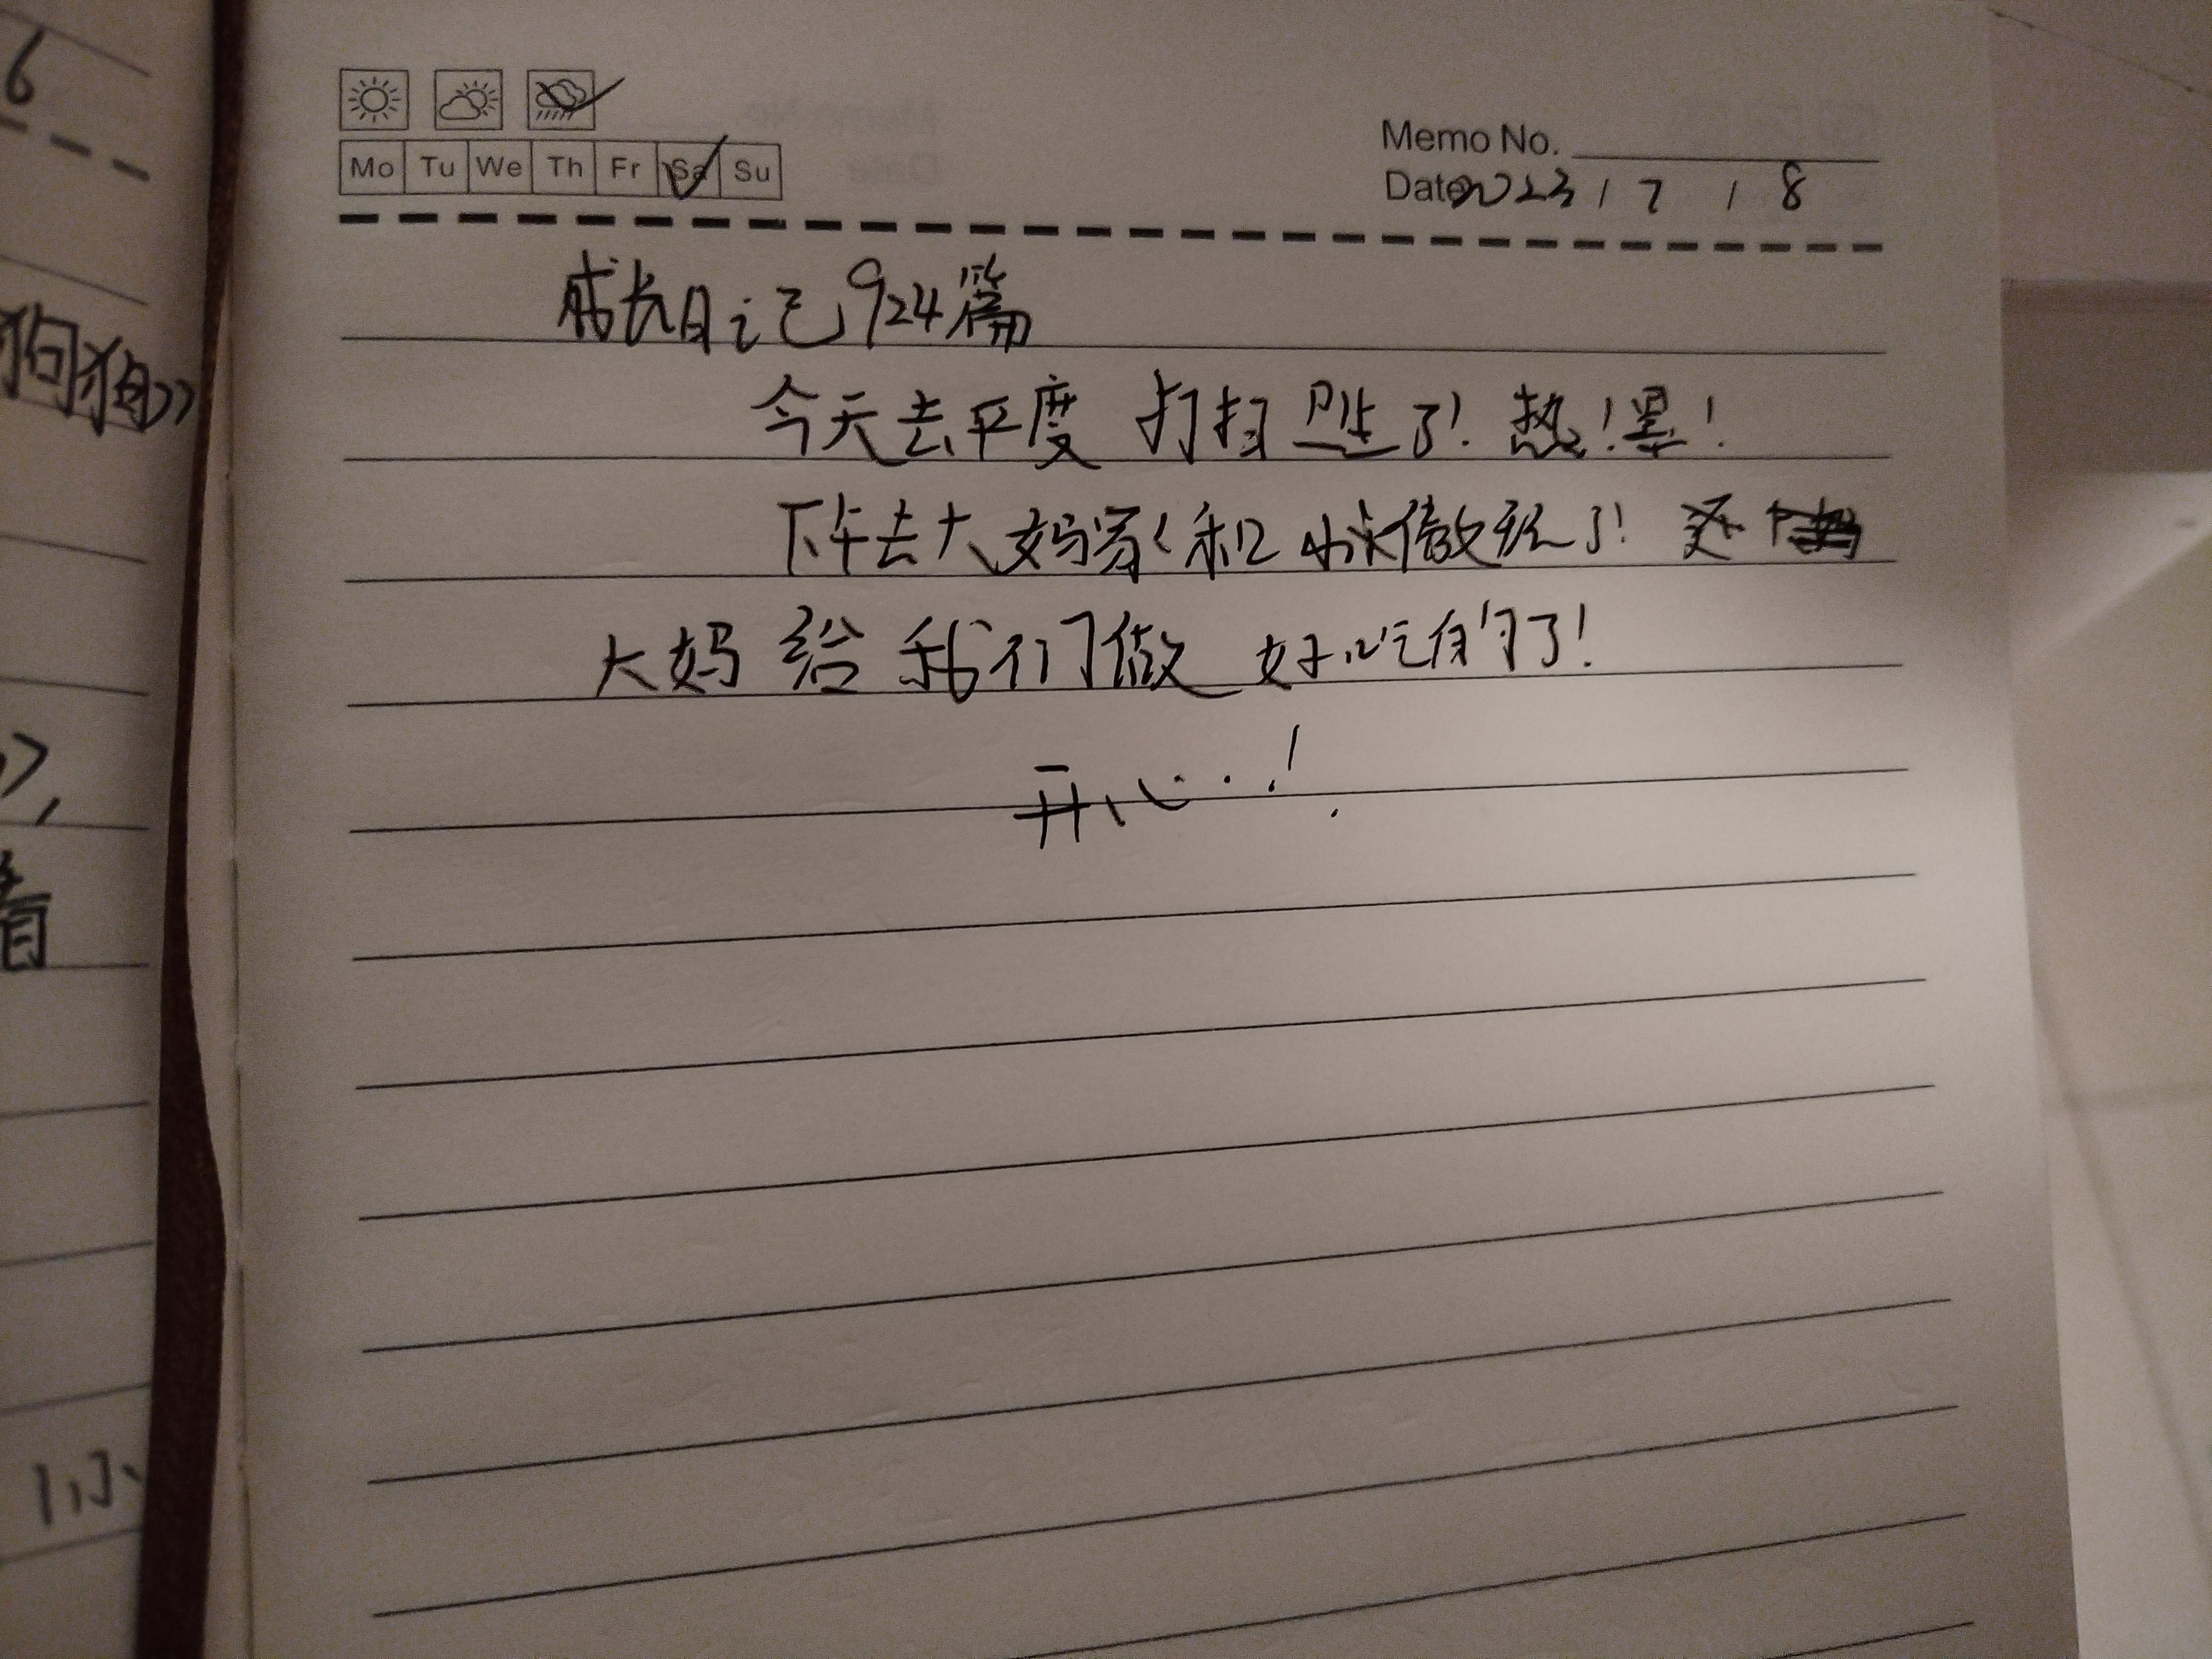 6
狗狗》
》,
着
小
Mo Tu We Th Fr Sa Su
Memo No.
Date 2023 / 7 / 8
成长日记924篇
今天去平度 打扫卫生了! 热!累!
下午去大妈家和妹做玩了! 还
大妈给我们做好吃的了!
开心..!